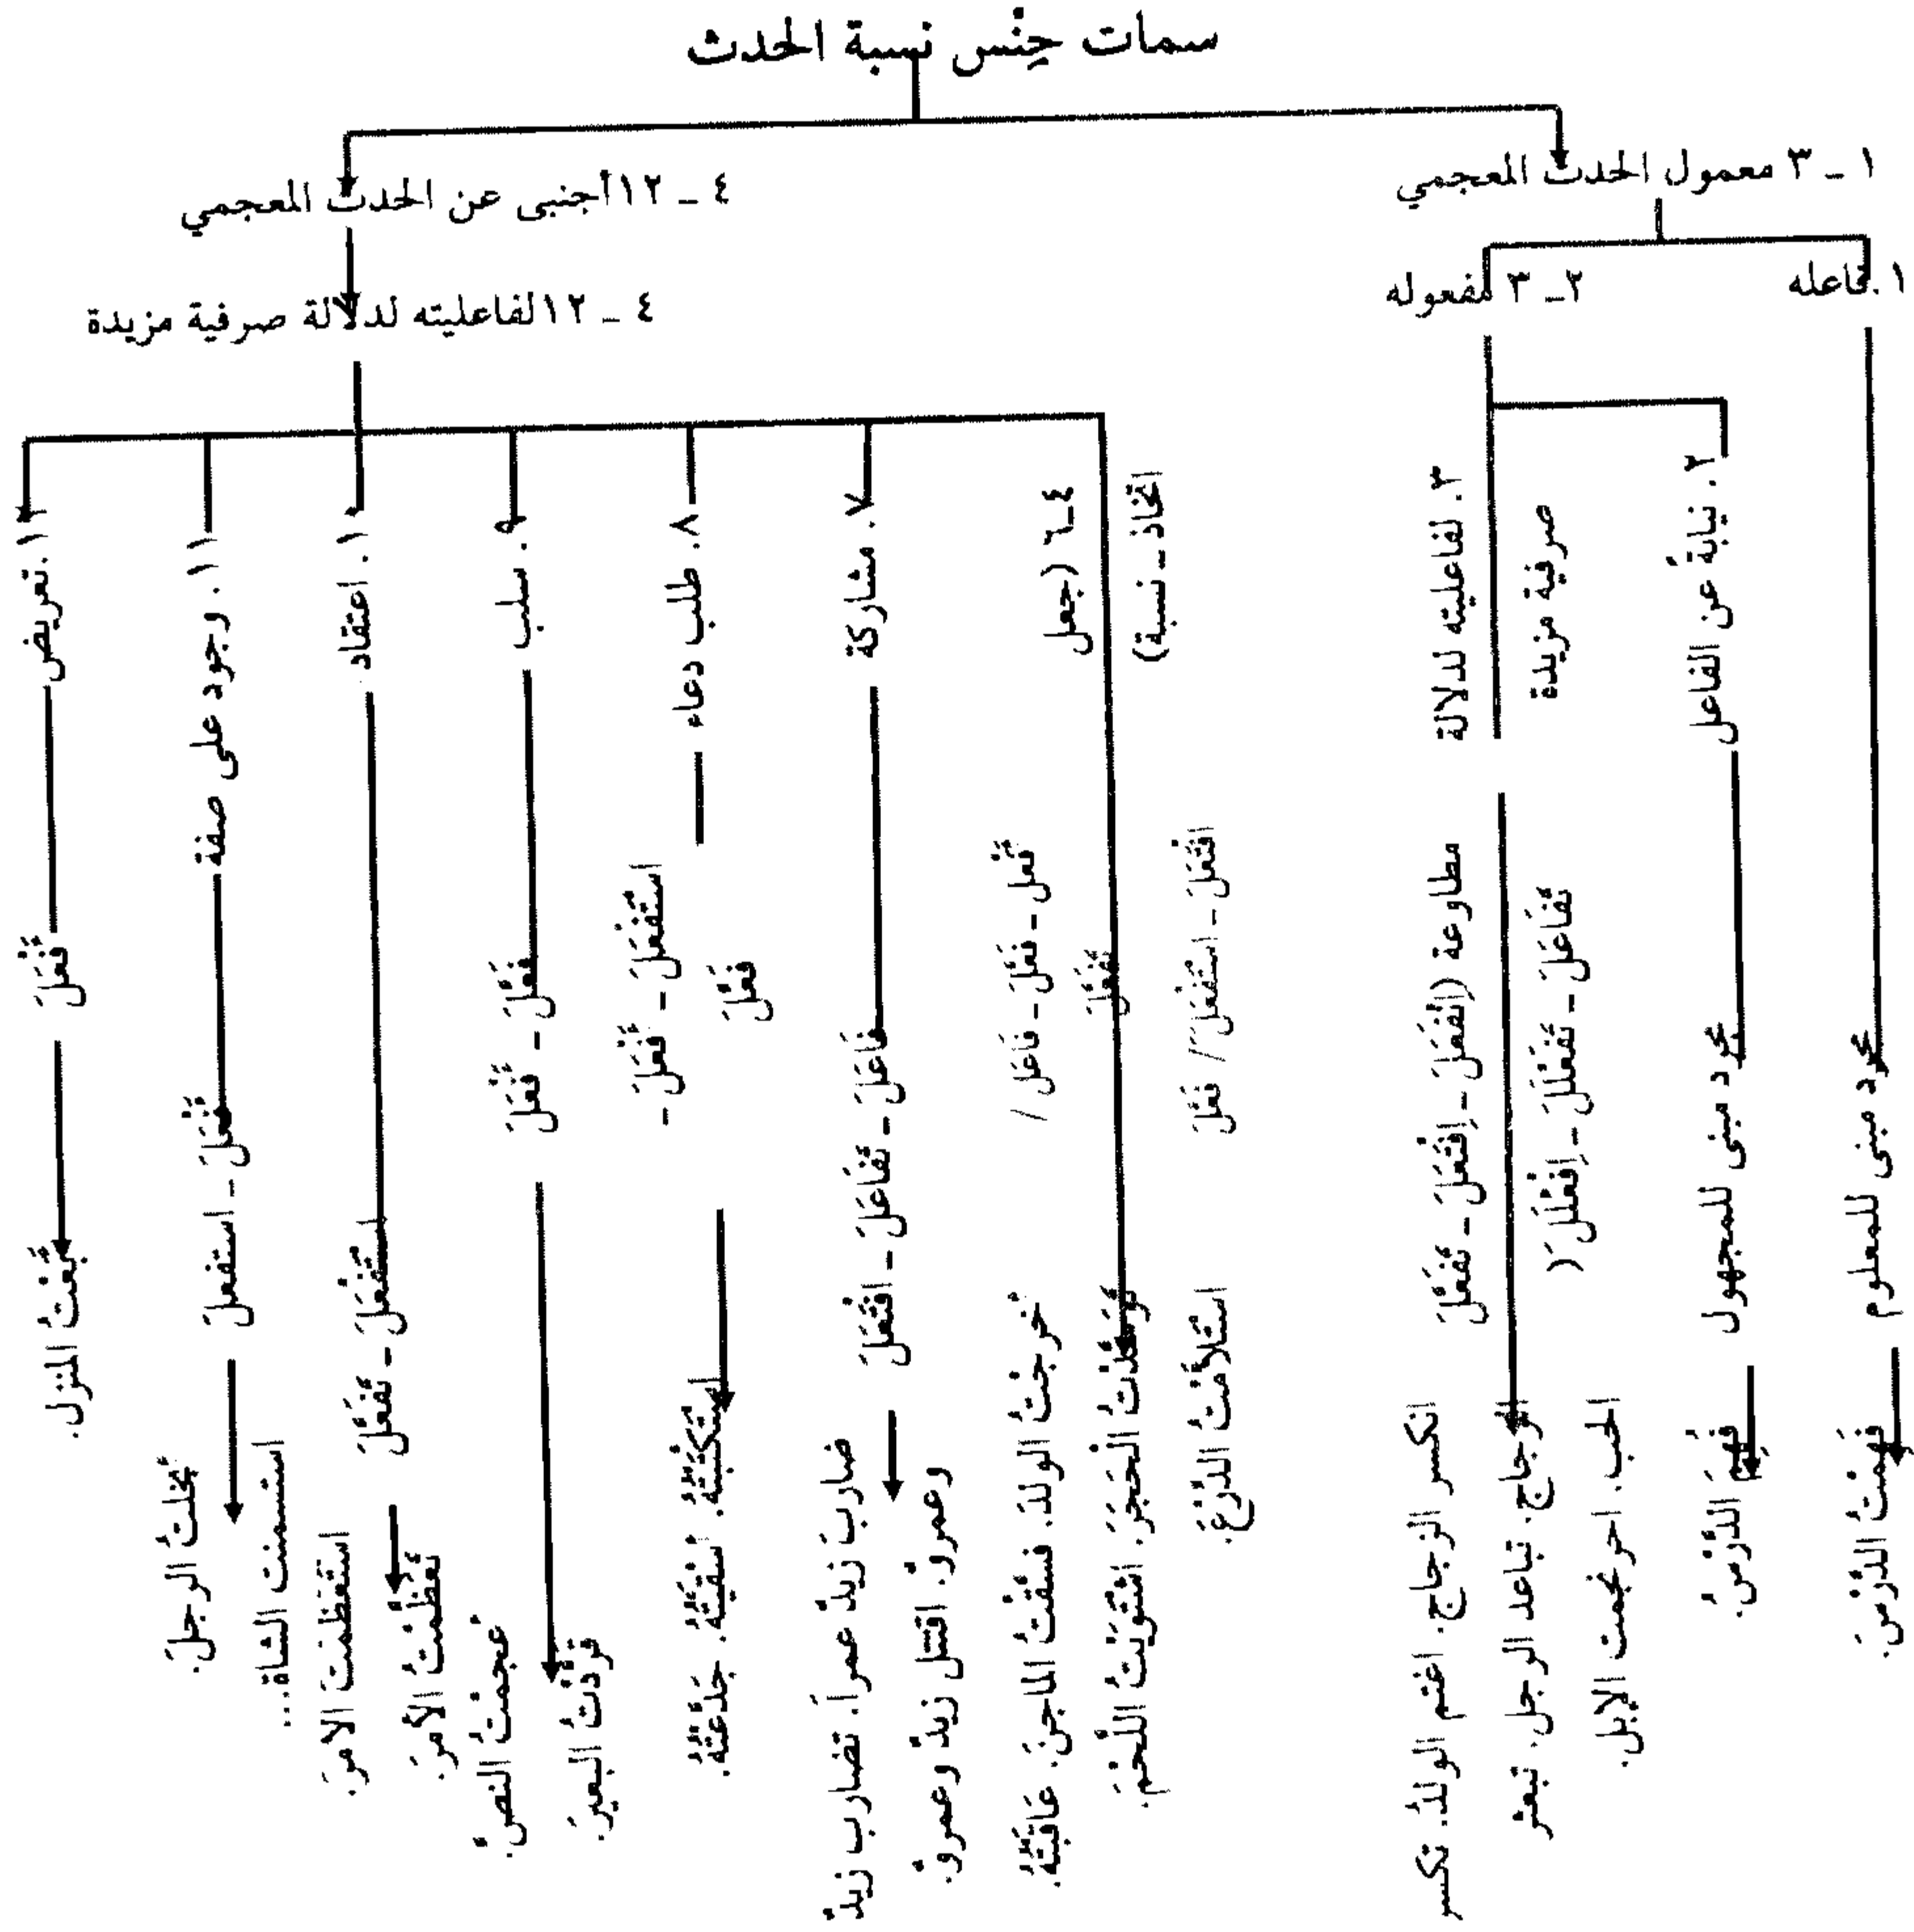 سمات جِنْس نسبة الحدث
١ ـ ٣ معمول الحدث المعجمي
٤ ـ ١٢ أجنبى عن الحدث المعجمي
١. فاعله
٢ ـ ٣ مفعوله
٤ ـ ١٢ لفاعليته لدلالة صرفية مزيدة
مجرد مبنى للمعلوم
فَهِمْتُ الدَّرْسَ.
٢. نيابةً عن الفاعل
مجرد مبنى للمجهول
فُهِمَ الدَّرْسُ.
٣. لفاعليته لدلالة
صرفية مزيدة
مطاوعة (انْفَعَلَ ـ اِفْتَعَلَ ـ تَفَعَّلَ
تَفَاعَلَ ـ تَفَعْلَلَ ـ اِفْعَنْلَلَ)
انكسر الزجاج. اغتم الولدُ. تكسر
الزجاج. تباعد الرجل. تبعثر
الحب. احرنجمت الإبل.
٤ـ٦ (جعل
اتخاذ ـ نسبة)
أَفْعَلَ ـ فَعَّلَ ـ فَاعَلَ /
تَفَعَّلَ
افْتَعَلَ ـ اسْتَفْعَلَ / فَعَّلَ
أخرجْتُ الولدَ. فسَّقْتُ الماجنَ. عَاقَبْتُهُ.
تَوَسَّدْتُ الْحَجَرَ. اشْتَوَيْتُ اللَّحْمَ.
اسْتَلأَمْتُ الدِّرْعَ.
٧. مشاركة
فَاعَلَ ـ تَفَاعَلَ ـ افْتَعَلَ
ضاربَ زيدٌ عمراً. تضارب زيدٌ
وعمروٌ. اقتتل زيدٌ وعمروٌ.
٨. طلب دعاء
اسْتَفْعَلَ ـ أَفْعَلَ ـ
فَعَّلَ
اسْتَكْتَبْتُهُ. أسْقَيْتُهُ. جَدَّعْتُهُ.
٩. سلب
فَعَّلَ ـ أَفْعَلَ
أعجمْتُ النصَّ.
قرَّدْتُ البعيرَ.
١٠. اعتقاد
اسْتَفْعَلَ ـ تَفَعَّلَ
استَعْظَمْتَ الأمرَ.
تَعَظَّمْتُ الأمرَ.
١١. وجود على صفة
أَفْعَلَ ـ استفعلَ
أبخلتُ الرجلَ.
استسمنت الشاة...
١٢. تعريض
أَفْعَلَ
أَبَعْتُ المنزل.